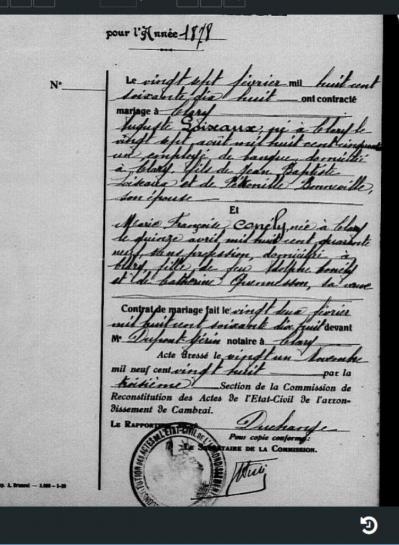 pour l'Année 1878
N°
Le vingt sept février mil huit cent
soixante dix huit ont contracté
mariage à Clary
Auguste Loiseaux, né à Clary le
vingt sept août mil huit cent cinquante
un employé de banque, domicilié
à Clary, fils de Jean Baptiste
Loiseaux et de Pétronille Bonneville,
son épouse
Et
Marie Françoise Conély, née à Clary
le quinze avril mil huit cent quarante
neuf, sans profession, domiciliée à
Clary fille de feu Adolphe Conély
et de Catherine sa veuve
Contrat de mariage fait le vingt deux février
mil huit cent soixante dix huit devant
Me Dupont notaire à Clary
Acte dressé le vingt un Novembre
mil neuf cent vingt huit par la
troisième Section de la Commission de
Reconstitution des Actes de l'Etat-Civil de l'arron-
dissement de Cambrai.
Le Rapporteur Duchange
Pour copie conforme:
Le Secrétaire de la Commission.